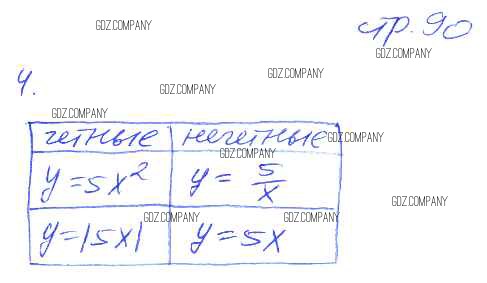 GDZ.COMPANY
стр. 90
GDZ.COMPANY
GDZ.COMPANY
4.
GDZ.COMPANY
GDZ.COMPANY
четные нечетные GDZ.COMPANY
GDZ.COMPANY
y = 5x² y = 5/x
GDZ.COMPANY
y = |5x| y = 5x
GDZ.COMPANY GDZ.COMPANY